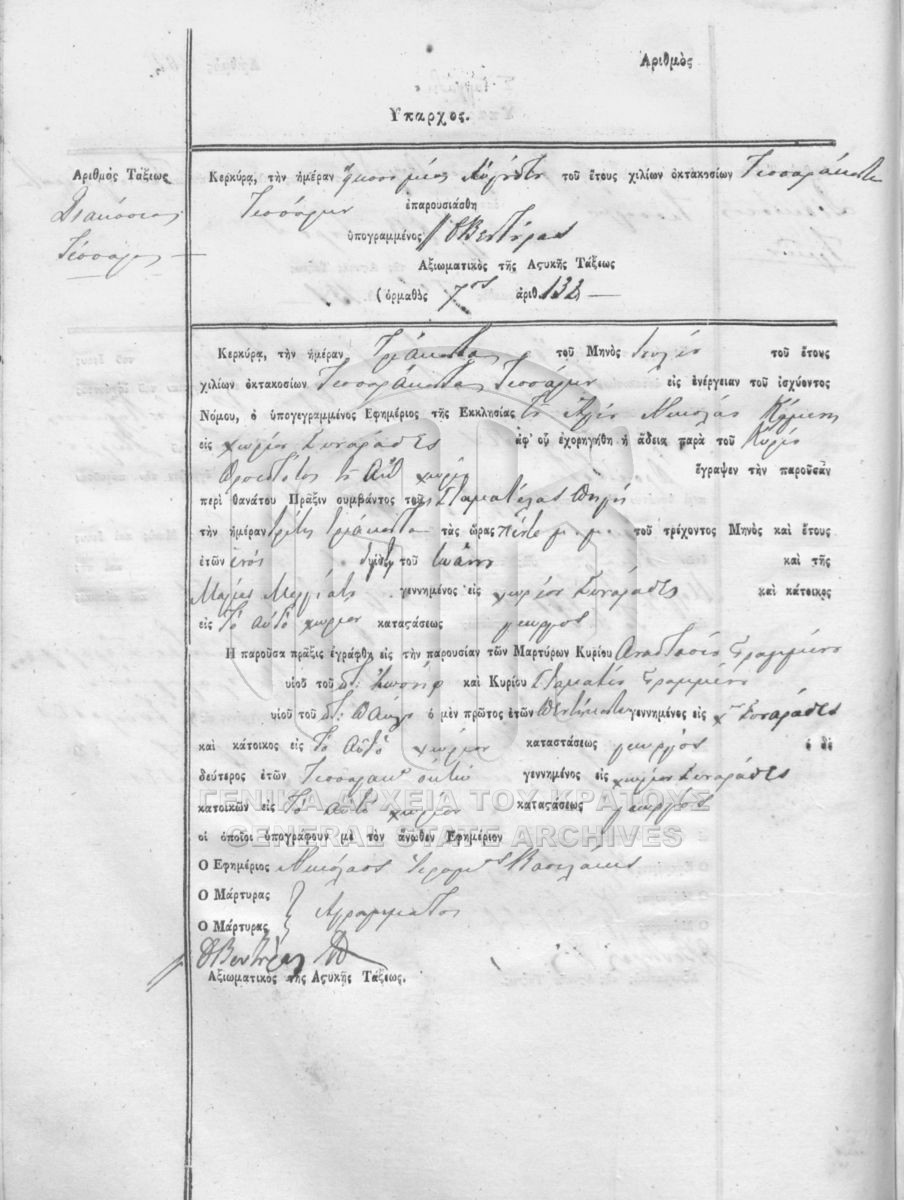 Ἀριθμὸς
Ὕπαρχος.
Ἀριθμὸς Τάξεως
Διακόσιας
Τέσσαρες
Κερκύρᾳ, τὴν ἡμέραν τοῦ ἔτους χιλίων ὀκτακοσίων Τεσσαράκοντα
Τεσσάρων ἐπαρουσιάσθη
ὑπογραμμένος Βεντύρας
Ἀξιωματικὸς τῆς Ἀςυκῆς Τάξεως
(ὁρμαθὸς 7ος ἀριθ. 132)
Κερκύρᾳ, τὴν ἡμέραν Τριάκοντα τοῦ Μηνὸς Ἰουλίου τοῦ ἔτους
χιλίων ὀκτακοσίων Τεσσαράκοντα Τεσσάρων εἰς ἐνέργειαν τοῦ ἰσχύοντος
Νόμου, ὁ ὑπογεγραμμένος Ἐφημέριος τῆς Ἐκκλησίας τοῦ Ἁγίου Νικολάου
εἰς χωρίον Συναράδες ἀφ' οὗ ἐχορηγήθη ἡ ἄδεια παρὰ τοῦ Κυρίου
Προεστῶτος τοῦ χωρίου ἔγραψεν τὴν παροῦσαν
περὶ θανάτου Πρᾶξιν συμβάντος τοῦ Σταματέλας
τὴν ἡμέραν Τρίτη Τριάκοντα τὰς ὥρας πέντε μ. μ. τοῦ τρέχοντος Μηνὸς καὶ ἔτους
ἐτῶν ἑνός τοῦ Ἰωάννη καὶ τῆς
Μαρίας γεννημένος εἰς χωρίον Συναράδες καὶ κάτοικος
εἰς Τὸ αὐτὸ χωρίον καταςάσεως γεωργός
Ἡ παροῦσα πρᾶξις ἐγράφθη εἰς τὴν παρουσίαν τῶν Μαρτύρων Κυρίου Ἀναστασίου Γραμμένου
υἱοῦ τοῦ καὶ Κυρίου Σταματίου Γραμμένου
υἱοῦ τοῦ Παύλου ὁ μὲν πρῶτος ἐτῶν Πεντήκοντα γεννημένος εἰς Συναράδες
καὶ κάτοικος εἰς Τὸ αὐτὸ χωρίον καταστάσεως γεωργός ὁ δὲ
δεύτερος ἐτῶν ὀκτὼ γεννημένος εἰς χωρίον Συναράδες
κατοικῶν εἰς Τὸ αὐτὸ χωρίον καταςάσεως γεωργός
οἱ ὁποῖοι ὑπογράφουν μὲ τὸν ἄνωθεν Ἐφημέριον
ΓΕΝΙΚΑ ΑΡΧΕΙΑ ΤΟΥ ΚΡΑΤΟΥΣ
GENERAL STATE ARCHIVES
Ὁ Ἐφημέριος Νικόλαος Ἱερομ. Βασιλάκης
Ὁ Μάρτυρας
Ἀγράμματος
Ὁ Μάρτυρας
Ἀξιωματικὸς τῆς Ἀςυκῆς Τάξεως.